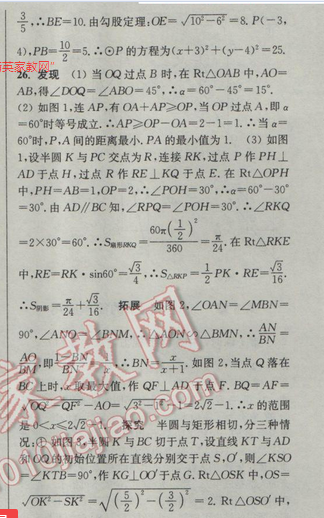 3/5, ∴BE=10. 由勾股定理:OE=√(10²-6²)=8. P(-3,
4), PB=10/2=5. ∴⊙P 的方程为(x+3)²+(y-4)²=25.
26. 发现 (1) 当 OQ 过点 B 时,在 Rt△OAB 中,AO=
AB,得∠DOQ=∠ABO=45°,∴α=60°-45°=15°.
(2) 如图 1,连 AP,有 OA+AP≥OP,当 OP 过点 A,即 α
=60°时等号成立. ∴AP≥OP-OA=2-1=1. ∴当 α=
60°时,P、A 间的距离最小. PA 的最小值为 1. (3) 如图
1,设半圆 K 与 PC 交点为 R,连接 RK,过点 P 作 PH⊥
AD 于点 H,过点 R 作 RE⊥KQ 于点 E. 在 Rt△OPH
中,PH=AB=1,OP=2,∴∠POH=30°,∴α=60°-30°
=30°. 由 AD∥BC 知,∠RPQ=∠POH=30°. ∴∠RKQ
=2×30°=60°. ∴S扇形RKQ=60π(1/2)²/360=π/24. 在 Rt△RKE
中,RE=RK·sin60°=√3/4,∴S△RKP=1/2 PK·RE=√3/16.
∴S阴影=π/24+√3/16. 拓展 如图 2,∠OAN=∠MBN=
90°,∠ANO=∠BNM,∴△AON∽△BMN,∴AN/BN=
AO/BM,即 BN/x,∴BN=x/(x+1). 如图 2,当点 Q 落在
BC 上时,x 取最大值,作 QF⊥AD 于点 F. BQ=AF=
√(OQ²-QF²)-AO=√(3²-1²)-1=2√2-1. ∴x 的范围
是 0<x≤2√2-1. 探究 半圆与矩形相切,分三种情
况:① 如图 3,半圆 K 与 BC 切于点 T,设直线 KT 与 AD
和 OQ 的初始位置所在直线分别交于点 S,O′,则∠KSO
=∠KTB=90°,作 KG⊥OO′于点 G. Rt△OSK 中,OS=
√(OK²-SK²)=√((5/2)²-(3/2)²)=2. Rt△OSO′中,